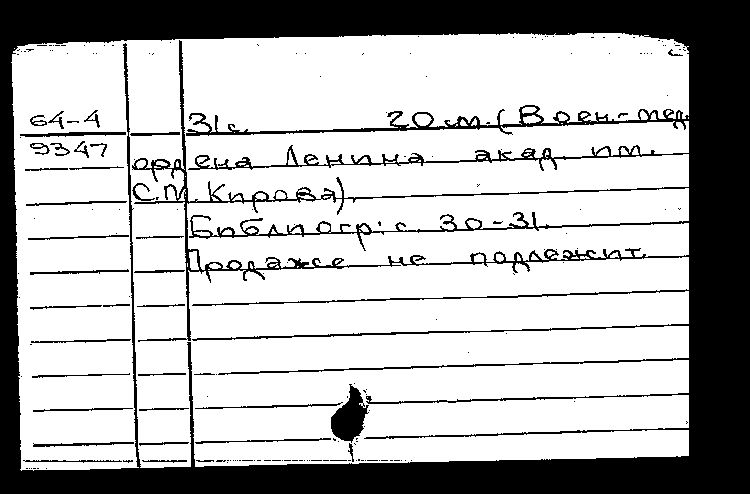 64-4 31с. 20 см. (Воен.-мед.
9347 ордена Ленина акад. им.
С.М. Кирова).
Библиогр: с. 30-31.
Продаже не подлежит.